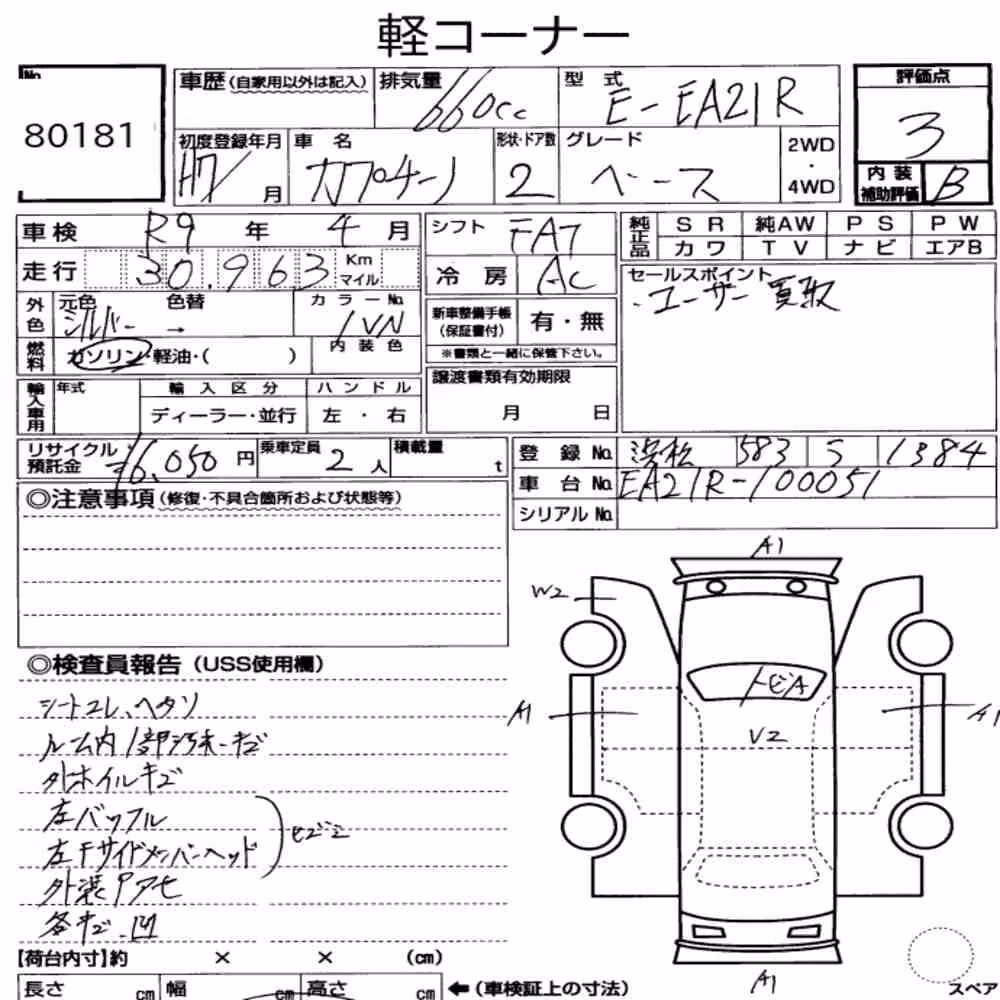 軽コーナー
No.
80181
車歴(自家用以外は記入) 排気量 660cc 型式 E-EA21R
評価点
3
初度登録年月 H7/ 月 車名 カプチーノ 形状・ドア数 2 グレード ベース 2WD・4WD
内装補助評価 B
車検 R9 年 4 月
走行 30,963 Km マイル
外色 元色 シルバー → 色替 カラーNo. 1VN
燃料 ガソリン・軽油・( ) 内装色
シフト FA7
冷房 AC
新車整備手帳(保証書付) 有・無
※書類と一緒に保管下さい。
純正品 SR 純AW PS PW
カワ TV ナビ エアB
セールスポイント
・ユーザー買取
輸入車用 年式 輸入区分 ハンドル
ディーラー・並行 左・右
譲渡書類有効期限
月 日
リサイクル預託金 ¥6.050 円 乗車定員 2 人 積載量 t
登録No. 浜松 583 う 1384
車台No. EA21R-100051
シリアルNo.
◎注意事項(修復・不具合箇所および状態等)
◎検査員報告(USS使用欄)
シートコレ、ヘタリ
ルーム内1部汚れ・キズ
外ホイルキズ
左バッフル
左Fサイドメンバーヘッド
外装Pアセ
各キズ.凹
A1
W2
トビA
A1
V2
A1
A1
スペア
【荷台内寸】約 × × (cm)
長さ cm 幅 cm 高さ cm ←(車検証上の寸法)